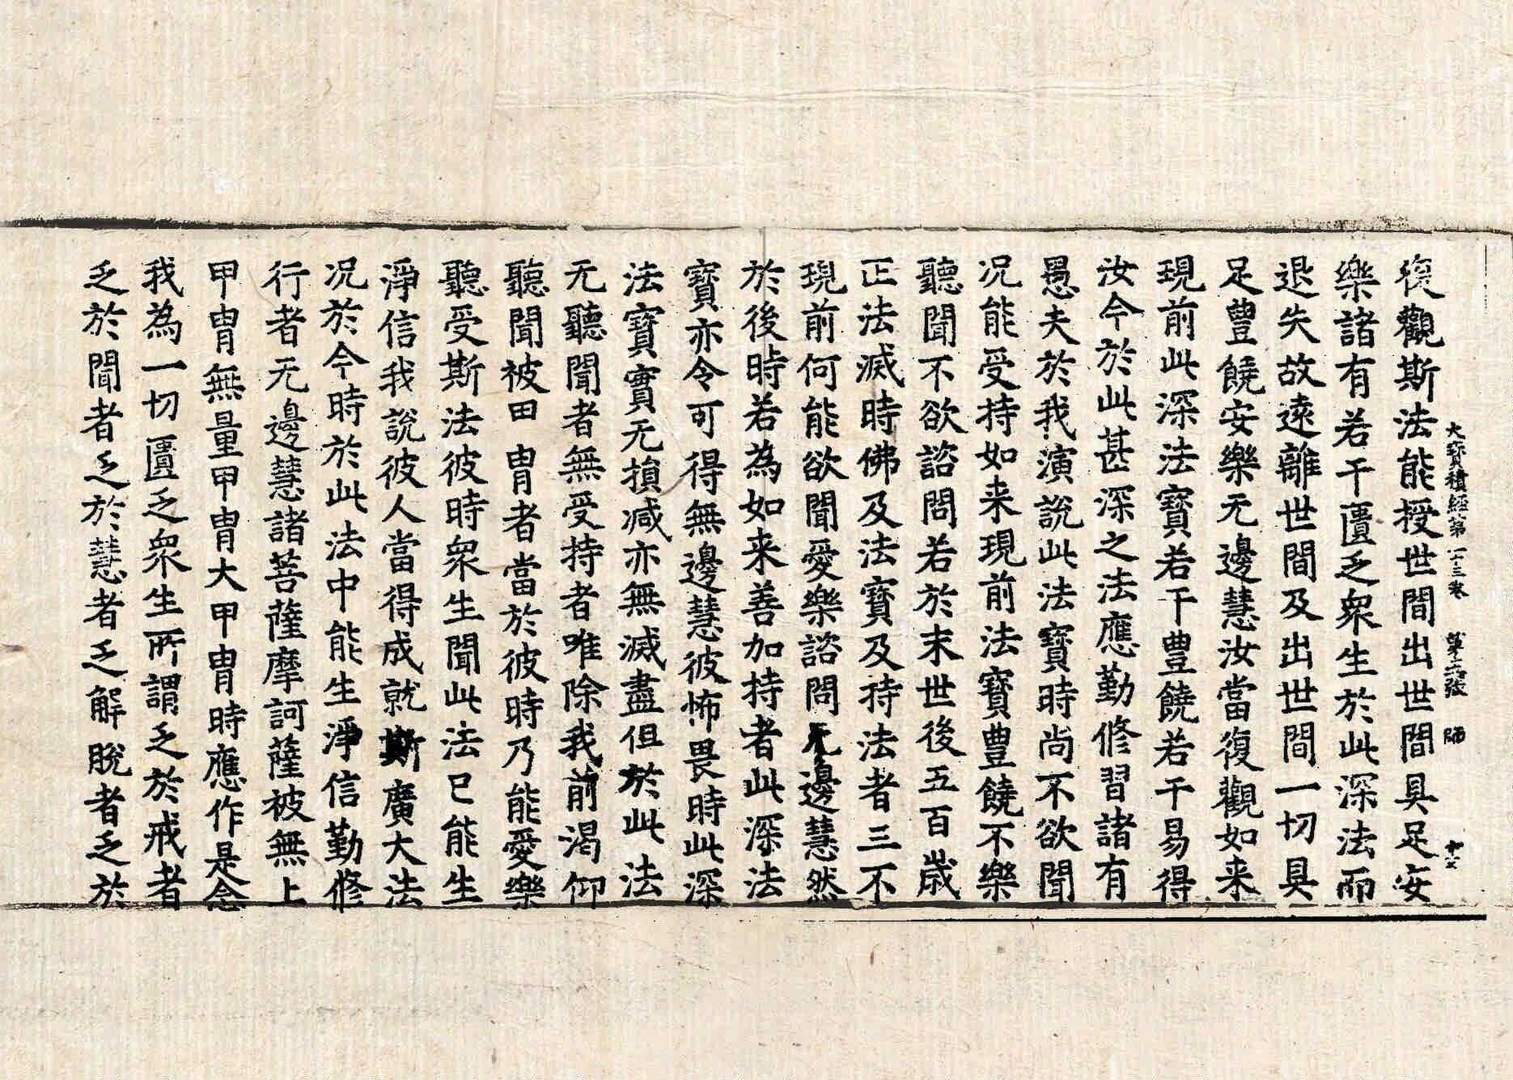 大寶積經第二十三卷 第二 師
復觀斯法能授世間出世間具足安
樂諸有若干匱乏眾生於此深法而
退失故遠離世間及出世間一切具
足豊饒安樂无邊慧汝當復觀如来
現前此深法寶若干豊饒若干易得
汝今於此甚深之法應勤修習諸有
愚夫於我演說此法寶時尚不欲聞
况能受持如来現前法寶豊饒不樂
聽聞不欲諮問若於末世後五百歲
正法滅時佛及法寶及持法者三不
現前何能欲聞愛樂諮問无邊慧然
於後時若為如来善加持者此深法
寶亦令可得無邊慧彼怖畏時此深
法寶實无損減亦無滅盡但於此法
无聽聞者無受持者唯除我前渴仰
聽聞被甲胄者當於彼時乃能愛樂
聽受斯法彼時眾生聞此法已能生
淨信我說彼人當得成就斯廣大法
况於今時於此法中能生淨信勤修
行者无邊慧諸菩薩摩訶薩被無上
甲胄無量甲胄大甲胄時應作是念
我為一切匱乏眾生所謂乏於戒者
乏於聞者乏於慧者乏解脫者乏於